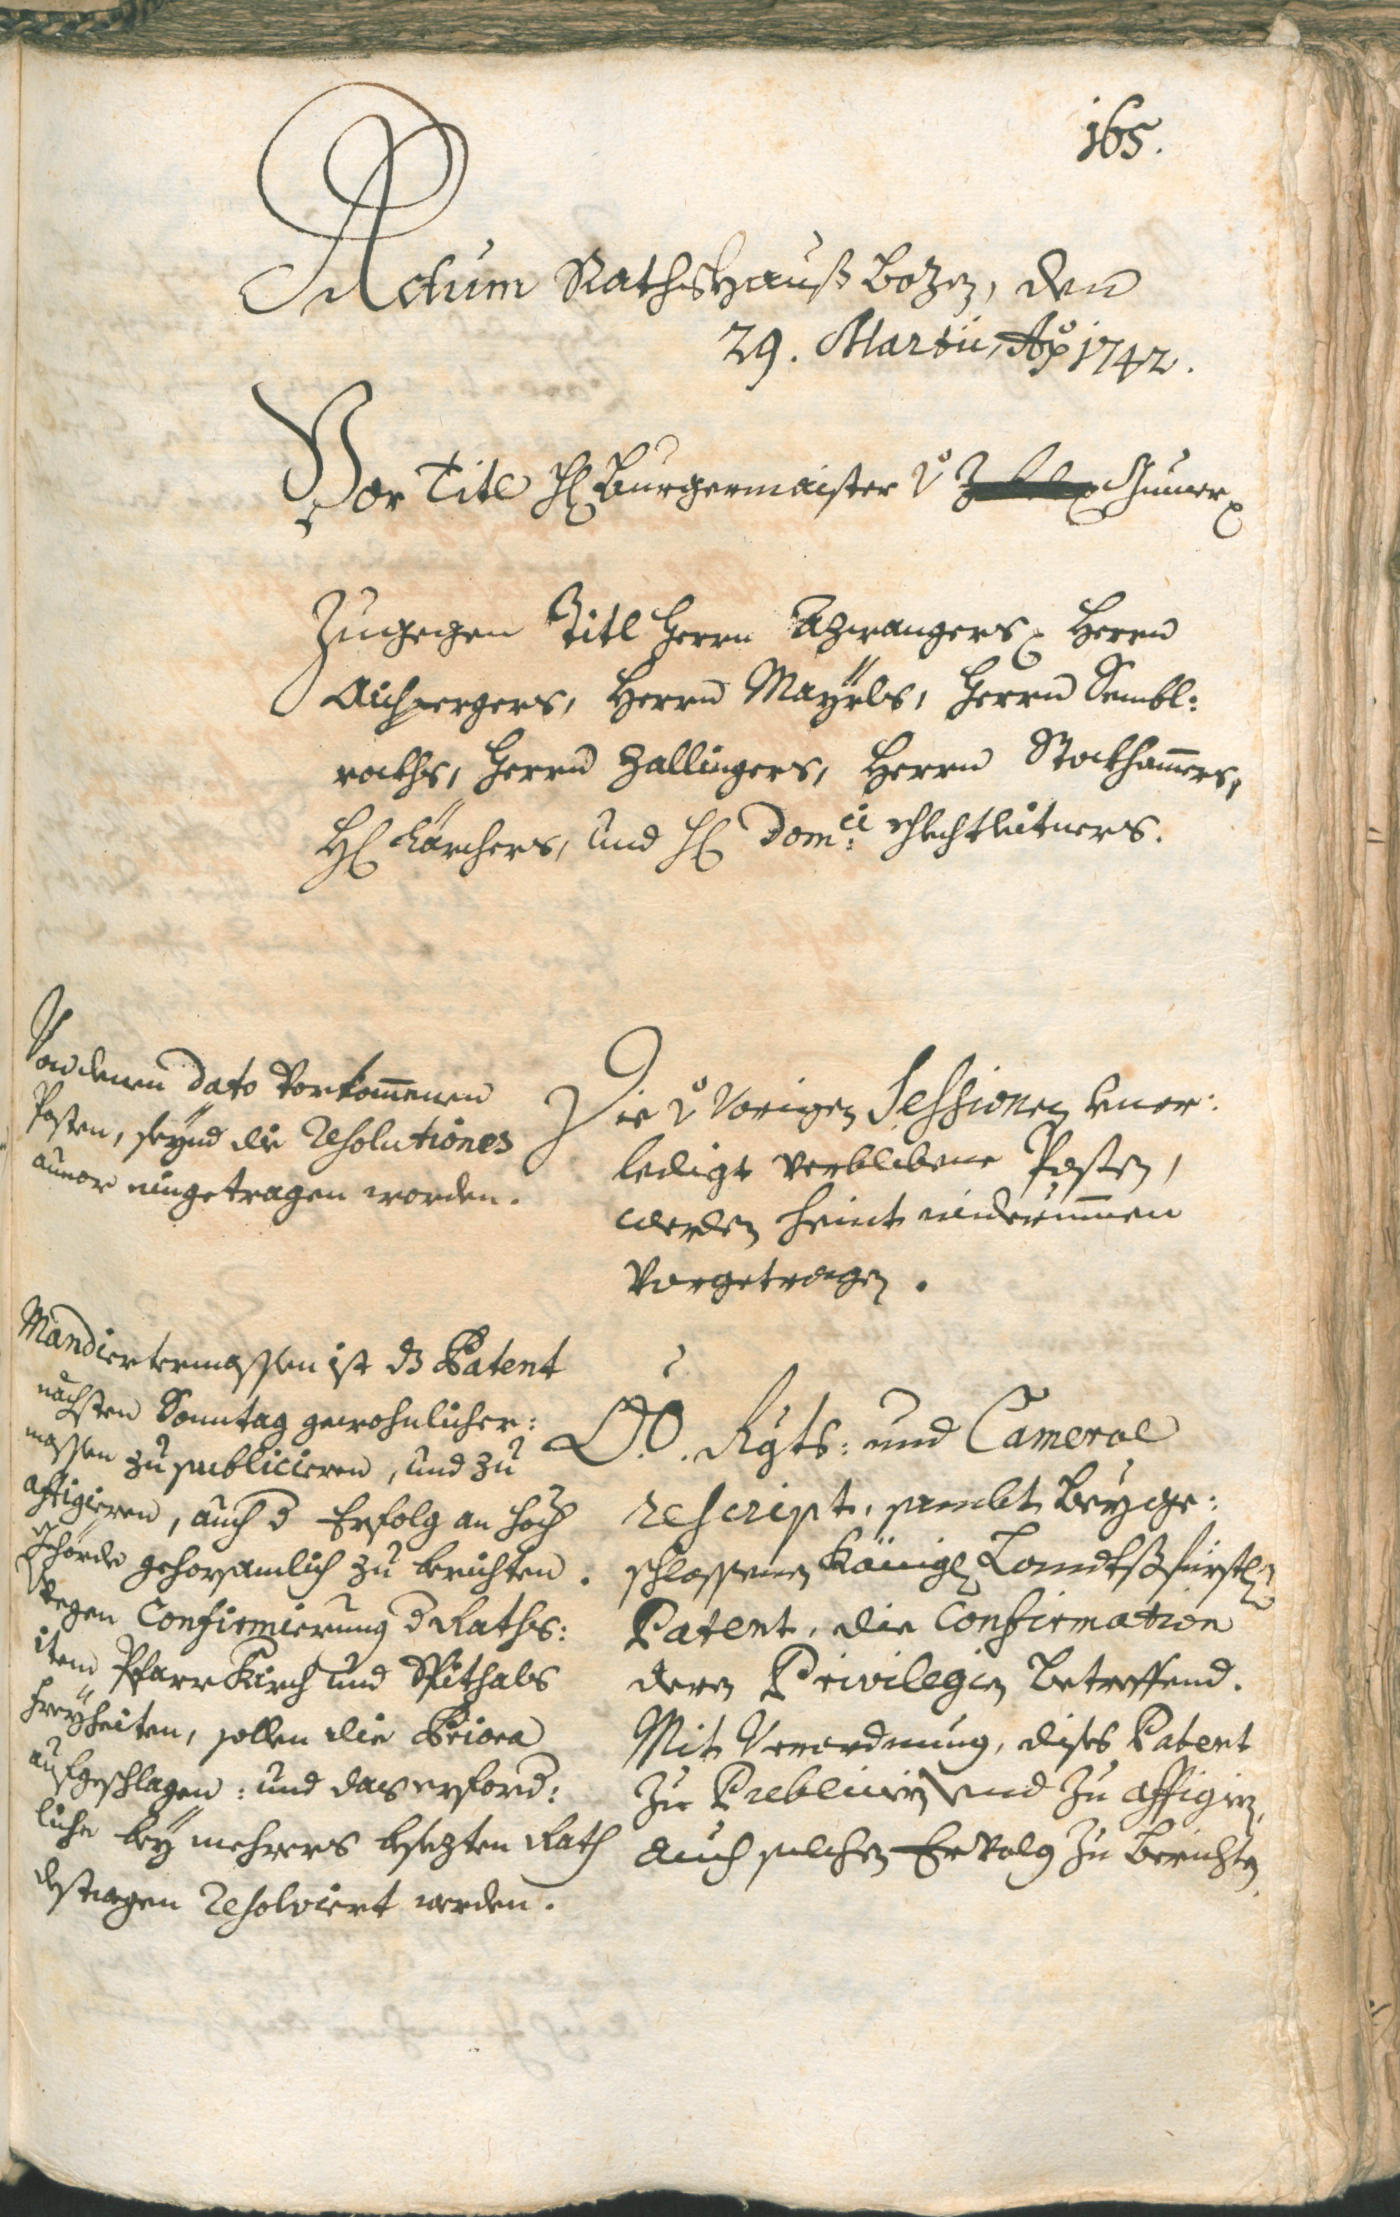 165.
Actum Rathshauß Bozen, den
29. Martii, Ao 1742.
Vor Titl H Burgermaister v Gumer
Zugegen Titl Herrn Azwangers, Herrn
Aichpergers, Herrn Mayrls, Herrn Sembl:
rocks, Herrn Zallingers, Herrn Stockhamers,
H Karchers, und H Dom: Schlechtleitners.
Von denen dato vorkomenen
Posten, seynd die Resolutiones
anvor eingetragen worden.
Die v vorigen Sessionen uner:
ledigt verblibene Posten,
werden heint widerummen
vorgetragen.
Mandiertermassen ist ds Patent
nächsten Sonntag gewohnlicher:
massen zu publicieren, und zu
affigieren, auch d Erfolg an hoch
Gehörde gehorsamlich zu berichten.
Wegen Confirmierung d Raths:
item PfarrKirch und Spithals
Freyheiten, sollen die Priora
aufgeschlagen: und das erford:
liche bey mehrers besezten Rath
destwegen Resolviert werden.
O:O. Rgts: und Cameral
rescript, sambt beyge:
schlossenen Königl Landtsfürstl
Patent, die Confirmation
deren Privilegien betreffend.
Mit Verordnung, dises Patent
zu Publicirn und zu affigirn,
auch solchen Ervolg zu berichten.